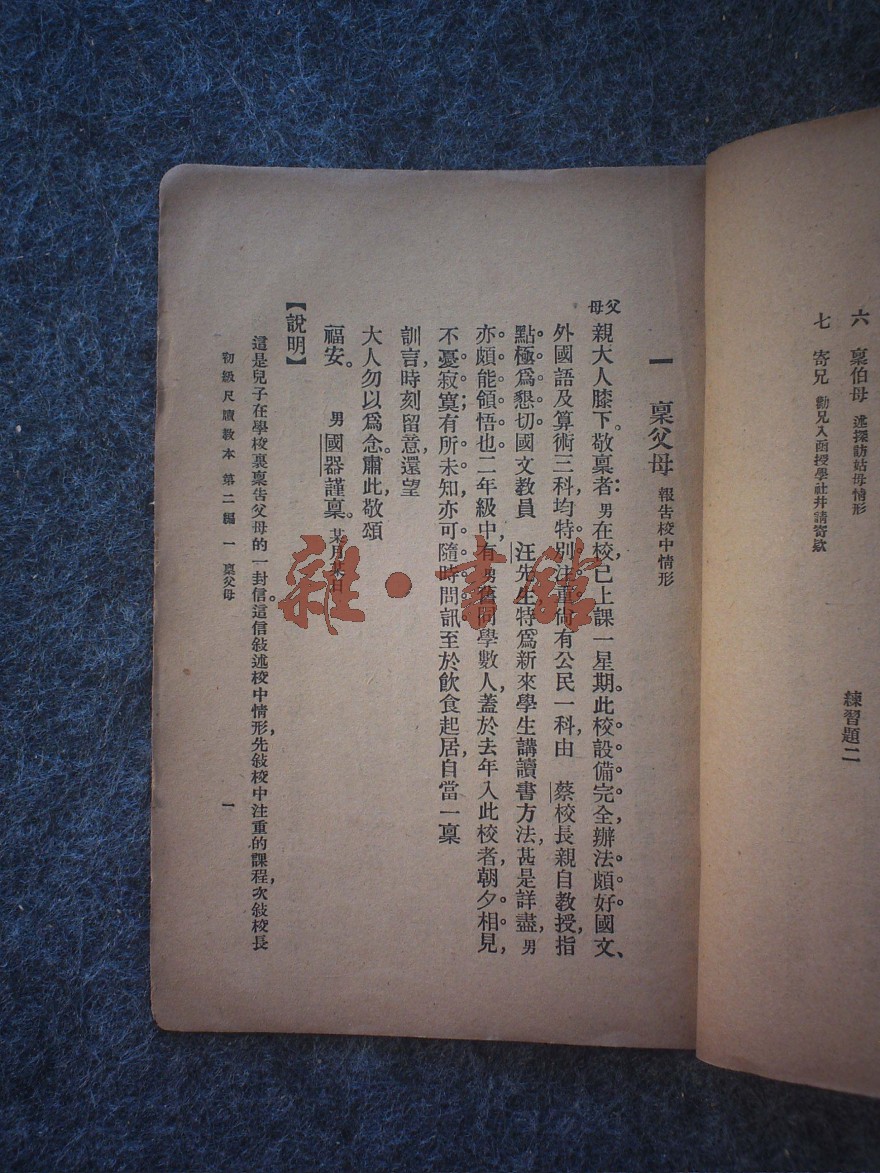 六　稟伯母　述探訪姑母情形
七　寄兄　勸兄入函授學社幷請寄欵
練習題二
一　稟父母　報告校中情形
父母親大人膝下。敬稟者：男在校已上課一星期。此校設備完全，辦法頗好。國文、
外國語及算術三科，均特別注重。尙有公民一科，由　蔡校長親自敎授，指
點極爲懇切。國文敎員　汪先生，特爲新來學生講讀書方法，甚是詳盡，男
亦頗能領悟也。二年級中，有男舊同學數人，蓋於去年入此校者，朝夕相見，
不憂寂寞；有所未知，亦可隨時問訊。至於飲食起居，自當一稟
訓言，時刻留意，還望
大人勿以爲念。肅此，敬頌
福安。　男國器謹稟。某月某日
【說明】
這是兒子在學校裏稟告父母的一封信。這信敍述校中情形，先敍校中注重的課程，次敍校長
初級尺牘敎本　第二編　一　稟父母　一
雜·書館